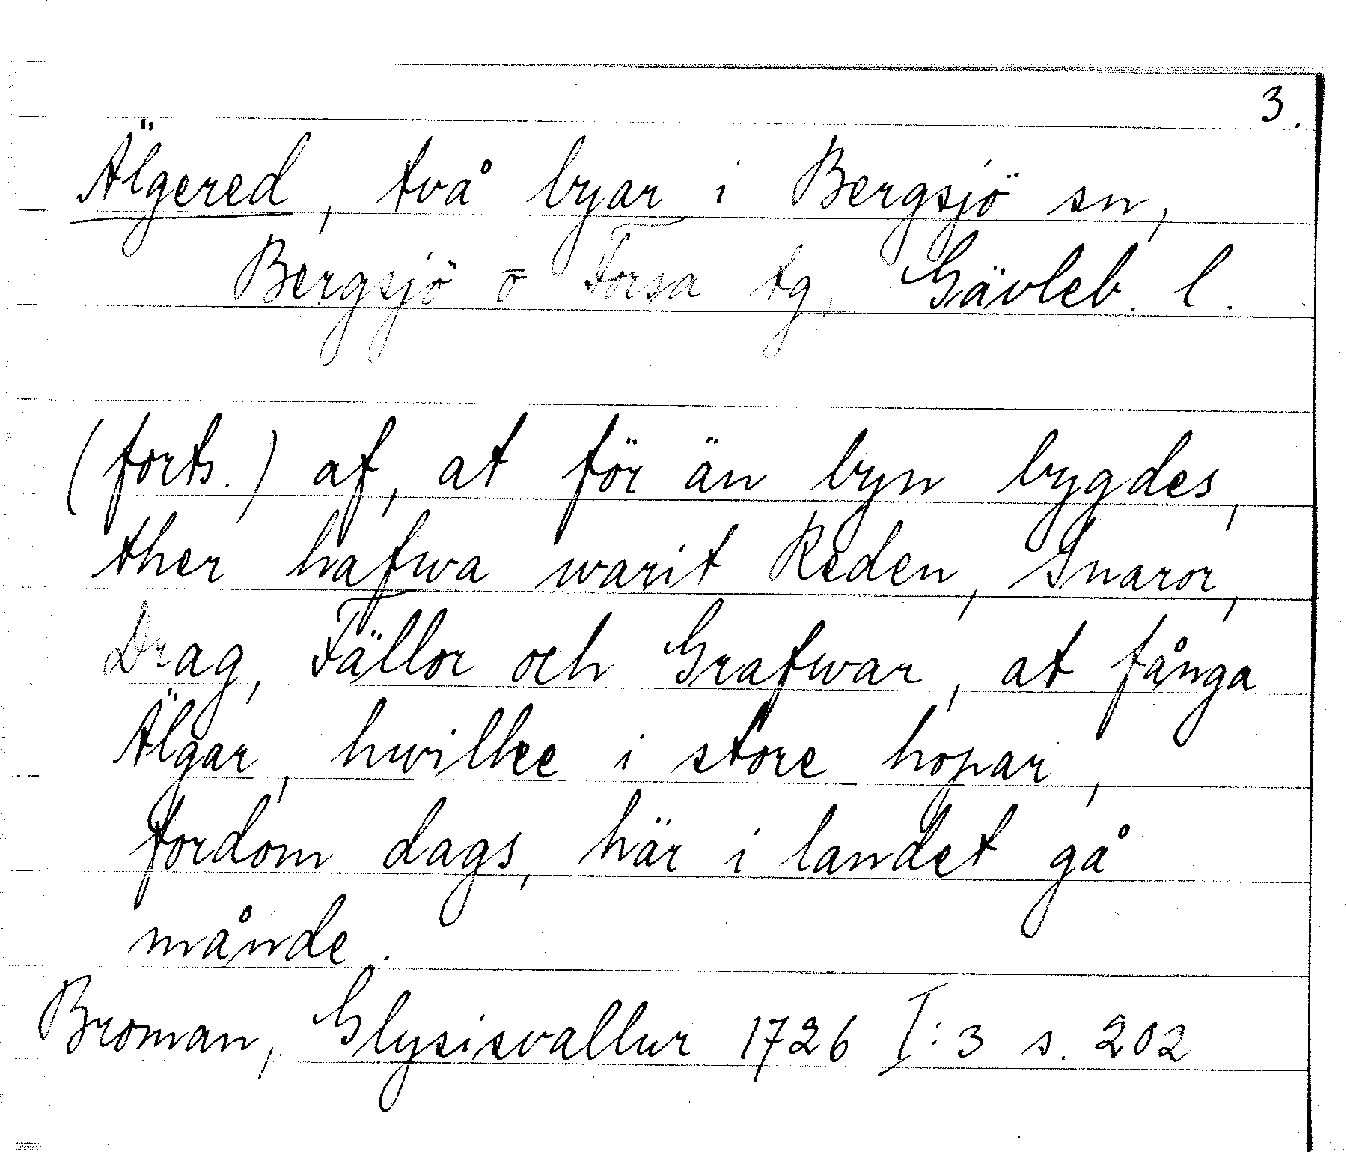 3.
Älgered, två byar i Bergsjö sn,
Bergsjö o Forsa tg, Gävleb. l.
(forts.) af, at för än byn bygdes,
ther hafwa warit Reden, Snaror,
Drag, Fällor och Grafwar, at fånga
Älgar, hwilke i store hopar,
fordom dags, här i landet gå
månde.
Broman, Glysisvallur 1726 I:3 s. 202